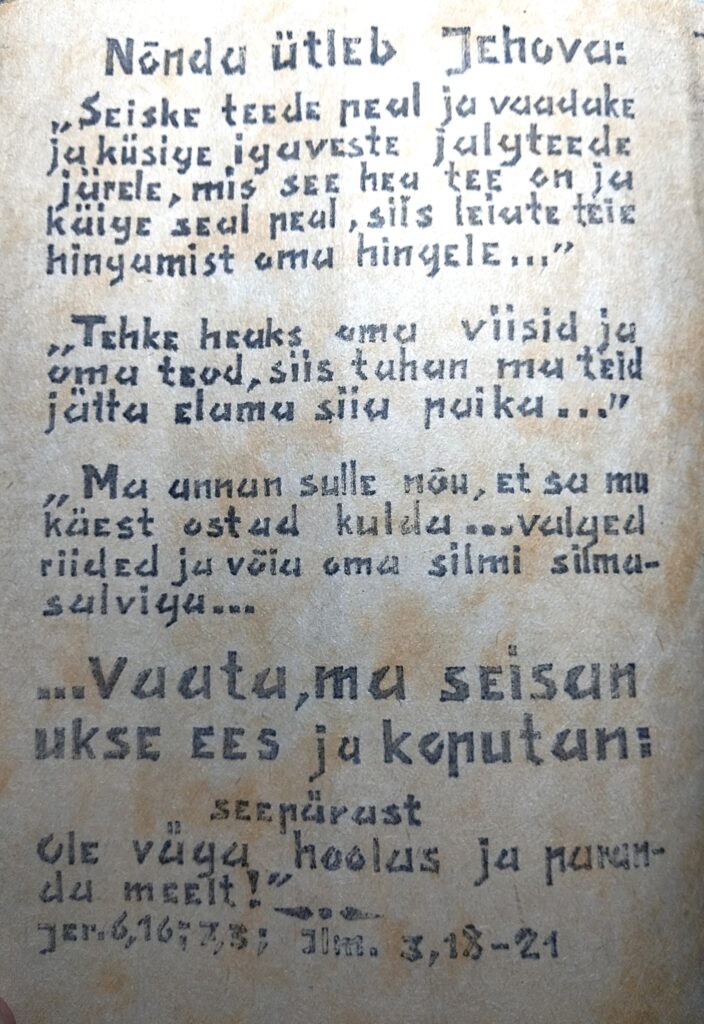 Nõnda ütleb Jehova:
„Seiske teede peal ja vaadake
ja küsige igaveste jalgteede
järele, mis see hea tee on ja
käige seal peal, siis leiate teie
hingamist oma hingele...”
„Tehke heaks oma viisid ja
oma teod, siis tahan ma teid
jätta elama siia paika...”
„Ma annan sulle nõu, et sa mu
käest ostad kulda...valged
riided ja võia oma silmi silma-
salviga...
...Vaata, ma seisan
ukse ees ja koputan:
seepärast
Ole väga hoolas ja paran-
da meelt!”
Jer. 6,16; 7,3; Ilm. 3,18-21